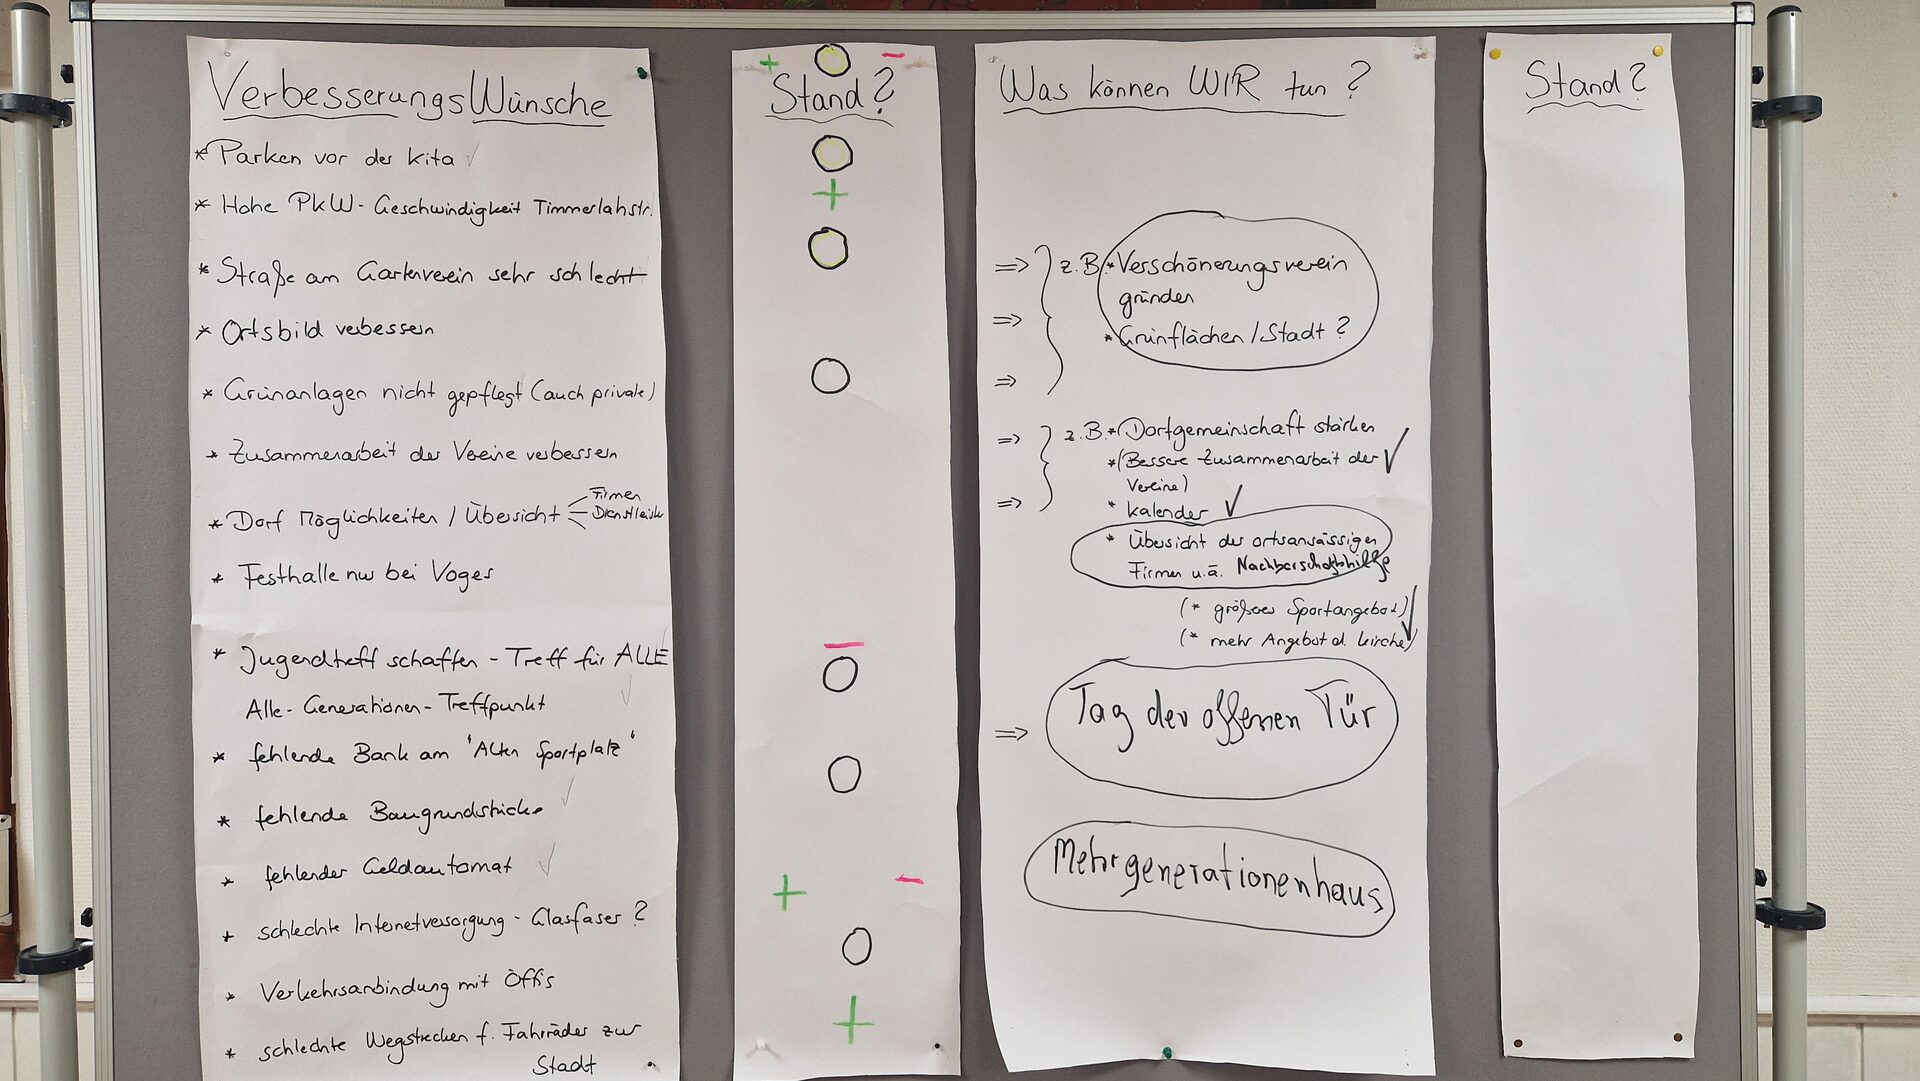 VerbesserungsWünsche
* Parken vor der Kita ✓
* Hohe PKW-Geschwindigkeit Timmerlahstr.
* Straße am Gartenverein sehr schlecht
* Ortsbild verbessern
* Grünanlagen nicht gepflegt (auch private)
* Zusammenarbeit der Vereine verbessern
* Dorf Möglichkeiten / Übersicht
Firmen
* Festhalle nur bei Voges
* Jugendtreff schaffen - Treff für ALLE
Alle-Generationen-Treffpunkt ✓
* fehlende Bank am 'Alten Sportplatz'
* fehlende Baugrundstücke ✓
* fehlender Geldautomat ✓
* schlechte Internetversorgung - Glasfaser?
* Verkehrsanbindung mit Öffis
* schlechte Wegstrecken f. Fahrräder zur
Stadt
+ O −
Stand?
O
+
O
O
−
O
O
+ −
O
+
Was können WIR tun?
⇒ z.B. * Verschönerungsverein
gründen
⇒ * Grünflächen / Stadt?
⇒
⇒ z.B. * Dorfgemeinschaft stärken
* (Bessere Zusammenarbeit der ✓
Vereine)
⇒ * Kalender ✓
* Übersicht der ortsansässigen
Firmen u.ä. Nachbarschaftshilfe
(* größeres Sportangebot)
(* mehr Angebot d. Kirche) ✓
⇒ Tag der offenen Tür
Mehrgenerationenhaus
Stand?